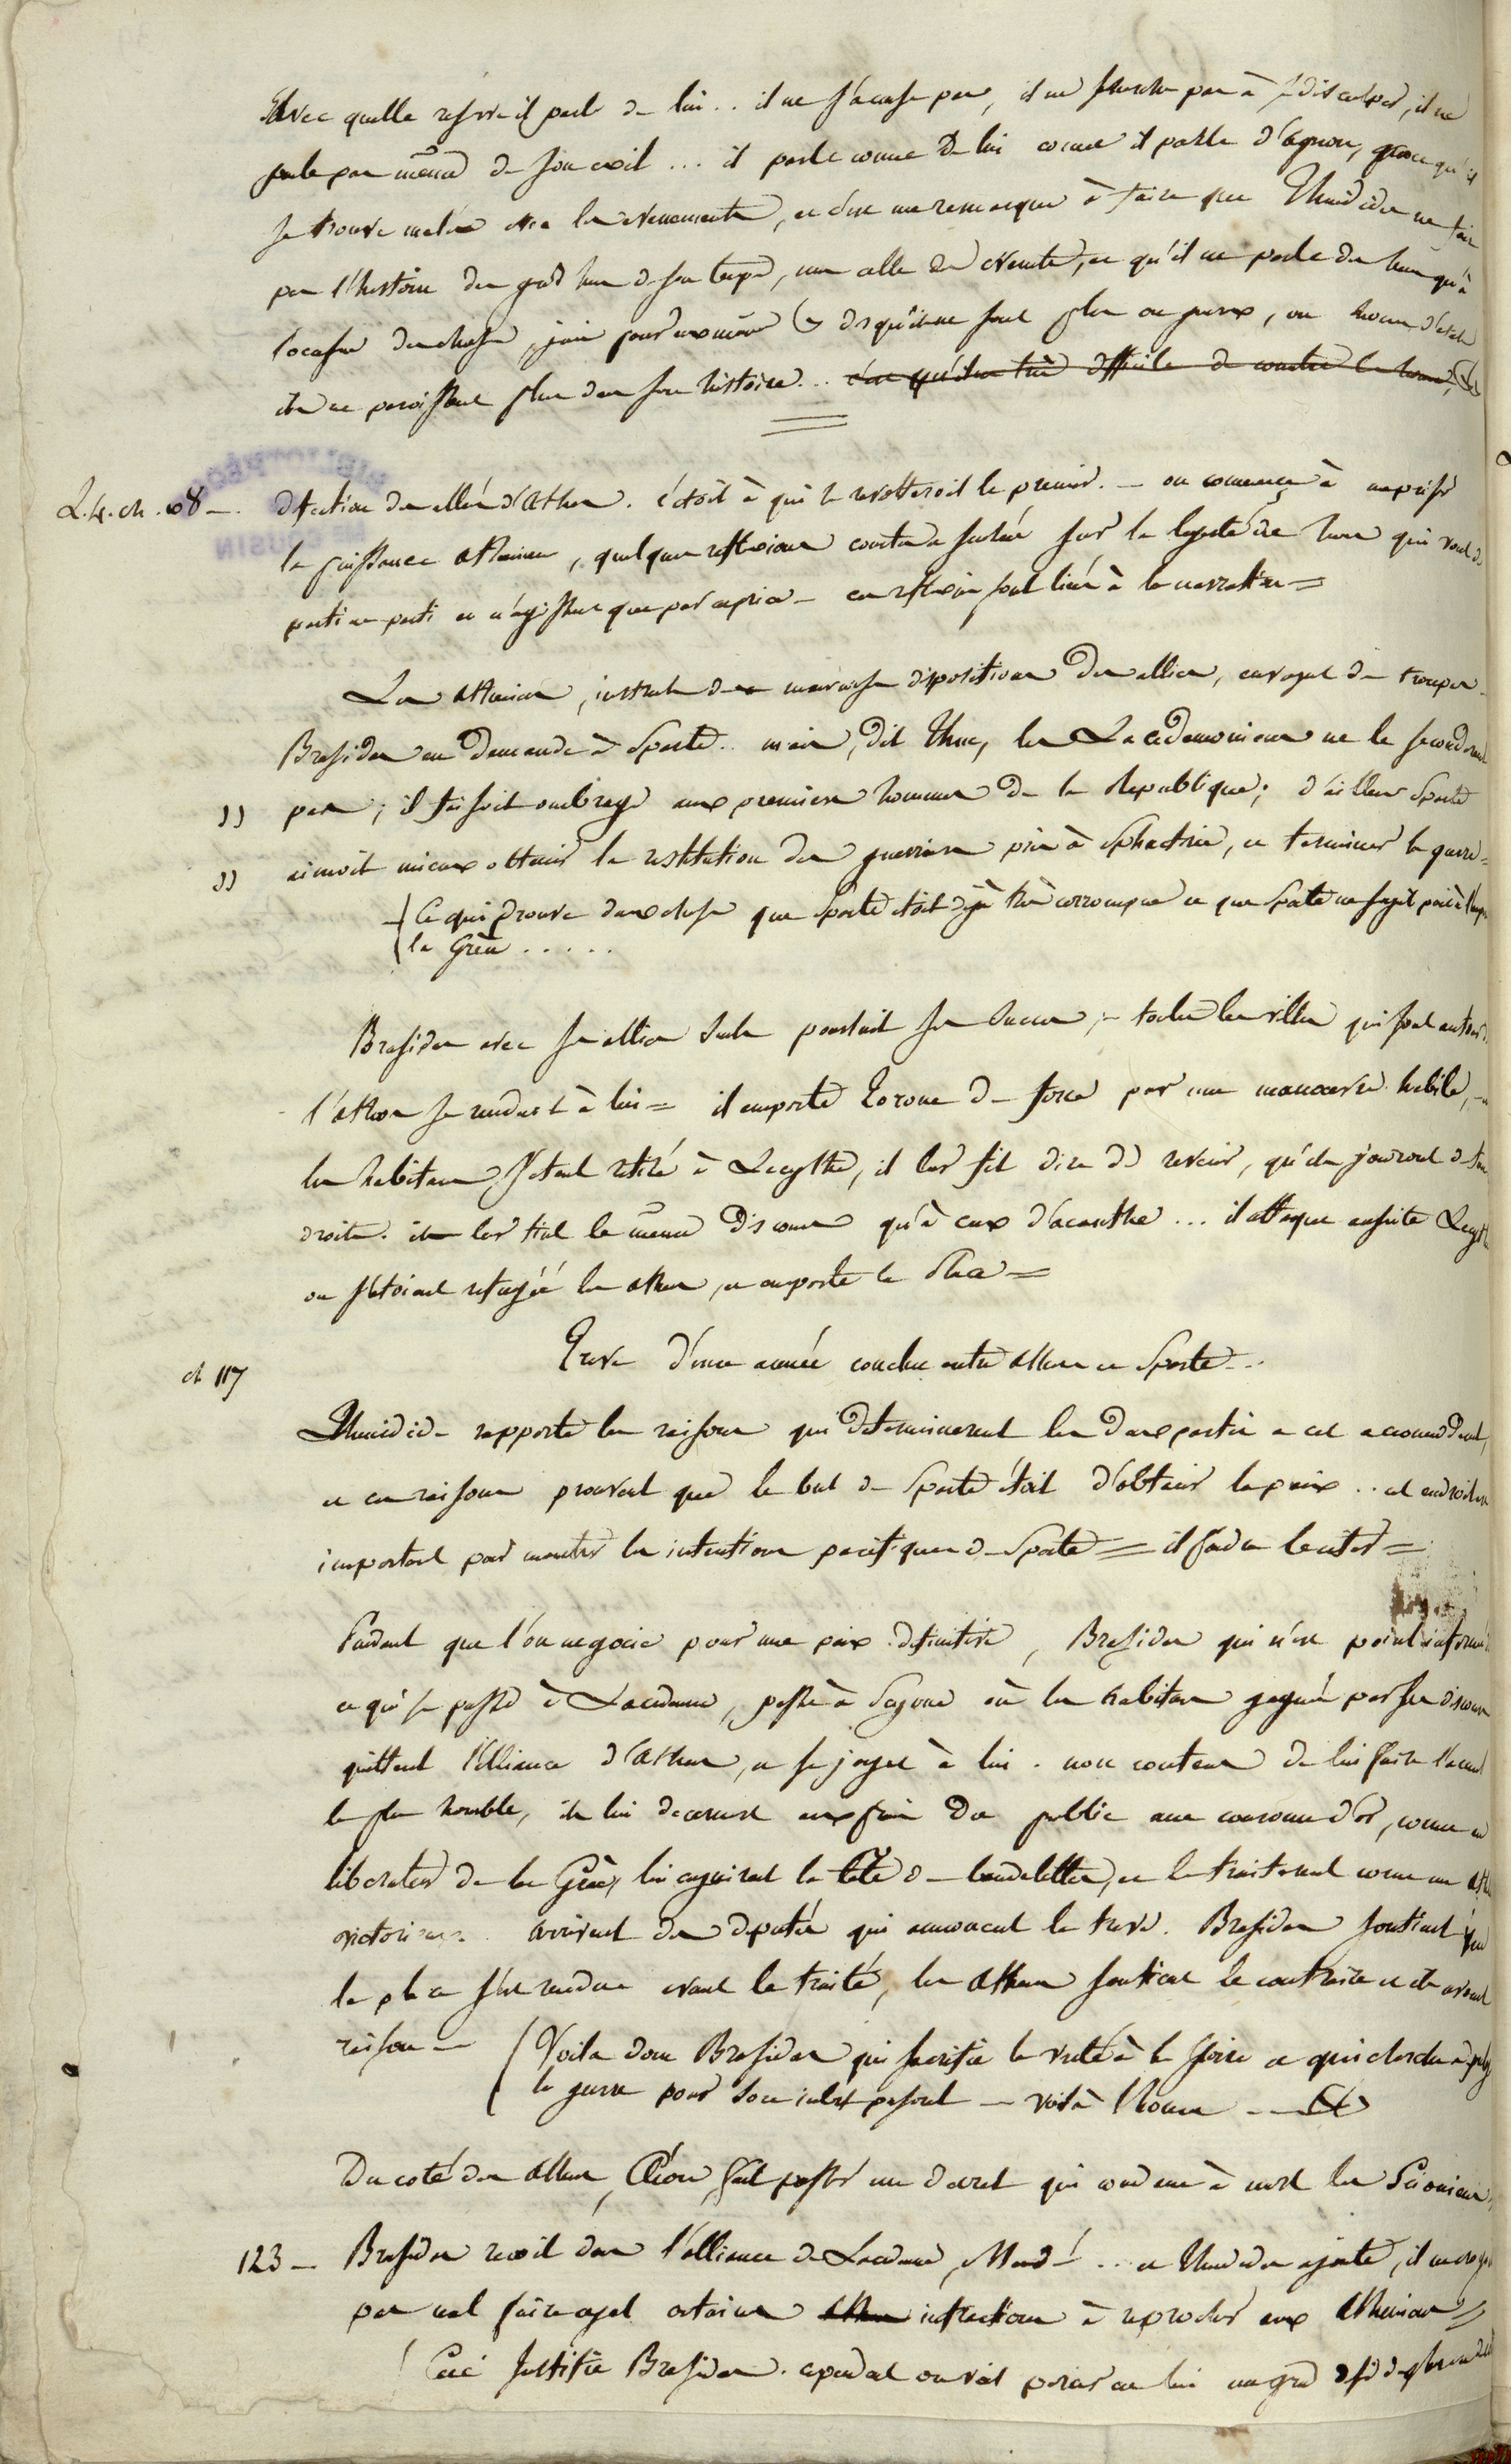 Avec quelle reserve il parle de lui .. il ne s'accuse pas, il ne cherche pas à se disculper, il ne
parle pas même de son exil ... il parle comme de lui comme il parle d'agnon, parce qu'il
se trouve melé avec les evenements, et c'est une remarque à faire que Thucidide ne fait
pas l'histoire des grds hoes de son temps, mais celle des events, et qu'il ne parle des hoes qu'à
l'ocasion des choses, jamais pour eux mêmes dès qu'ils ne sont plus au gouvt, ou hommes d'etat
ils ne paroissent plus dans son histoire ... c'est qu'il est très difficile de connaître les hommes,
L. 4. ch. 108 —. défection des alliés d'Athen. c'étoit à qui se revolteroit le premier. — on comença à mepriser
la puissance athenien, quelques reflexions courtes et sur la legereté des hoes qui vont de
parti en parti et n'agissent que par caprice — ces reflexions sont liées à la narration =
Les Atheniens, instruits des mauvaises dispositions des alliés, envoyent des troupes —
Brasidas en demande à Sparte .. mais, dit Thuc, les Lacedemoniens ne le secondent
» pas ; il faisoit ombrage aux premiers hommes de la Republique ; d'ailleurs Sparte
» aimoit mieux obtenir la restitution des guerriers pris à Sphacterie, et terminer la guerre =
Ce qui prouve deux choses que Sparte étoit déjà très corrompue et que Sparte ne
la Grèce .....
Brasidas avec ses alliés seuls poursuit ses succès, — toutes les villes qui sont autour de
l'athos se rendent à lui = il emporte Torone de force par une manœuvre habile,
les habitans s'étant retiré à Lecythe, il leur fit dire de revenir, qu'ils jouiront de leurs
droits. il leur tint le même discours qu'à ceux d'acanthe ... il attaque ensuite Lecythe
où s'étoient refugiés les Athen, et emporte la place =
Treve d'une année conclue entre Athene et Sparte ...
ch 117
Thucidide rapporte les raisons qui determinerent les deux partis à cet accomodent,
et ces raisons prouvent que le but de Sparte étoit d'obtenir la paix .. cet endroit est
important pour montrer les intentions pacifiques de Sparte = il faudra le citer =
Pendant que l'on negocie pour une paix definitive, Brasidas qui n'est point informé
ce qui se passe à Lacedemone, passe à Scyone où les habitans gagnés par ses discours
quittent l'alliance d'Athene, et se joignent à lui. non contens de lui faire l'acceuil
le plus honorable, ils lui decernent aux frais du public une couronne d'or, comme au
liberateur de la Grèce, lui ceignirent la tête de bandelettes, et le traiterent comme un athlète
victorieux. arrivent des deputés qui annoncent la treve. Brasidas soutient que
la place s'est rendue avant le traité, les Athen soutiennent le contraire et ils avoient
raison — Voila donc Brasidas qui sacrifie la verité à la gloire et qui cherche à
la guerre pour son intert personel — voilà l'homme —
Du coté des Athen, Cléon fait passer un decret qui condamne à mort les Scioniens,
123 — Brasidas reçoit dans l'alliance de Lacedemone, Mendé ... et Thucidide ajoute, il ne croyoit
pas mal faire ayant certaines Athen infractions à reprocher aux Atheniens =
Ceci justifie Brasidas. cependant on voit percer en lui un grd